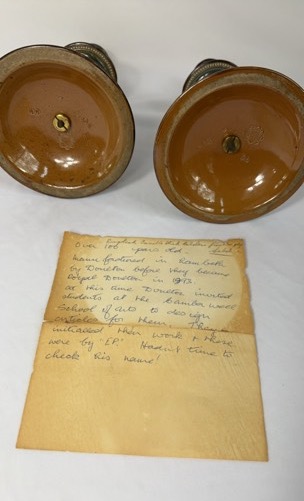 Over 100 years old
Manufactured in Lambeth
by Doulton before they became
Royal Doulton in
at this time Doulton invited
students at the Camberwell
School of Arts to design
articles for them. They
initialled their work & these
were by "E.P." Hadn't time to
check his name!